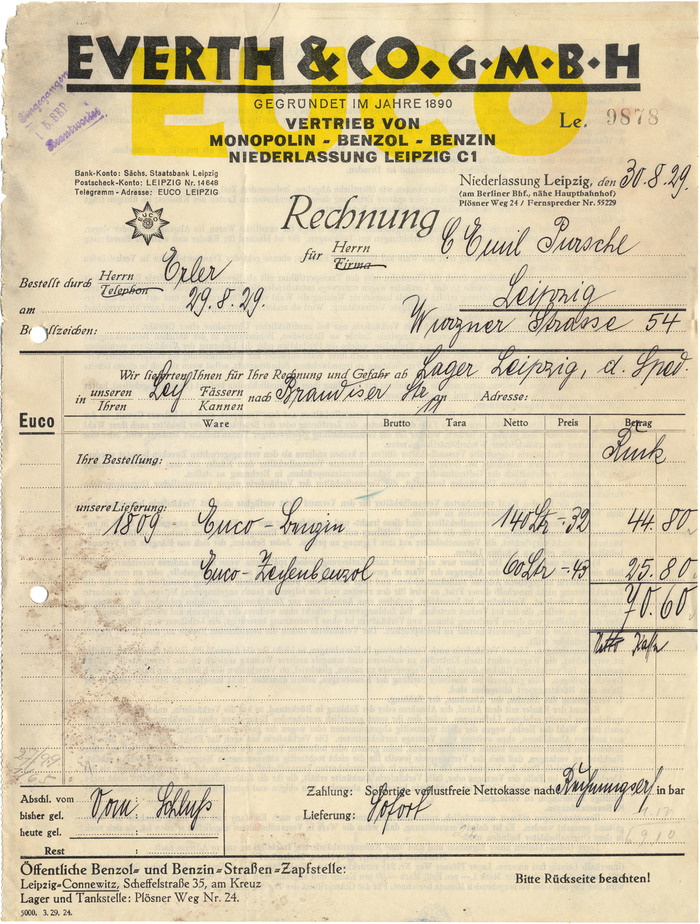 EVERTH & CO. G·M·B·H
EUCO
GEGRÜNDET IM JAHRE 1890
VERTRIEB VON
MONOPOLIN - BENZOL - BENZIN
NIEDERLASSUNG LEIPZIG C1
Le. 9878
Eingegangen
5. SEP.
Beantwortet:
Bank-Konto: Sächs. Staatsbank Leipzig
Postscheck-Konto: LEIPZIG Nr. 14648
Telegramm-Adresse: EUCO LEIPZIG
Niederlassung Leipzig, den 30.8.29.
(am Berliner Bhf., nähe Hauptbahnhof)
Plösner Weg 24 / Fernsprecher Nr. 55229
EUCO
Rechnung
für Herrn
Firma
C. Emil Pursche
Leipzig
Wurzner Strasse 54
Bestellt durch Herrn
Telephon
Erler
am 29.8.29.
Bestellzeichen:
Wir lieferten Ihnen für Ihre Rechnung und Gefahr ab Lager Leipzig, d. Sped.
in unseren
Ihren
Fässern
Kannen
nach Brandiser Str
Adresse:
Euco
Ware Brutto Tara Netto Preis Betrag
Ihre Bestellung:
unsere Lieferung:
1809 Euco-Benzin 140 Ltr -.32 44.80
60 Ltr -.43 25.80
70.60
Netto Kasse
Abschl. vom
bisher gel.
heute gel.
Rest
Vom Schluß
Zahlung: Sofortige verlustfreie Nettokasse nach Rechnungserh. in bar
Lieferung: Sofort
Öffentliche Benzol- und Benzin-Straßen-Zapfstelle:
Leipzig-Connewitz, Scheffelstraße 35, am Kreuz
Lager und Tankstelle: Plösner Weg Nr. 24.
5000. 3. 29. 24.
Bitte Rückseite beachten!